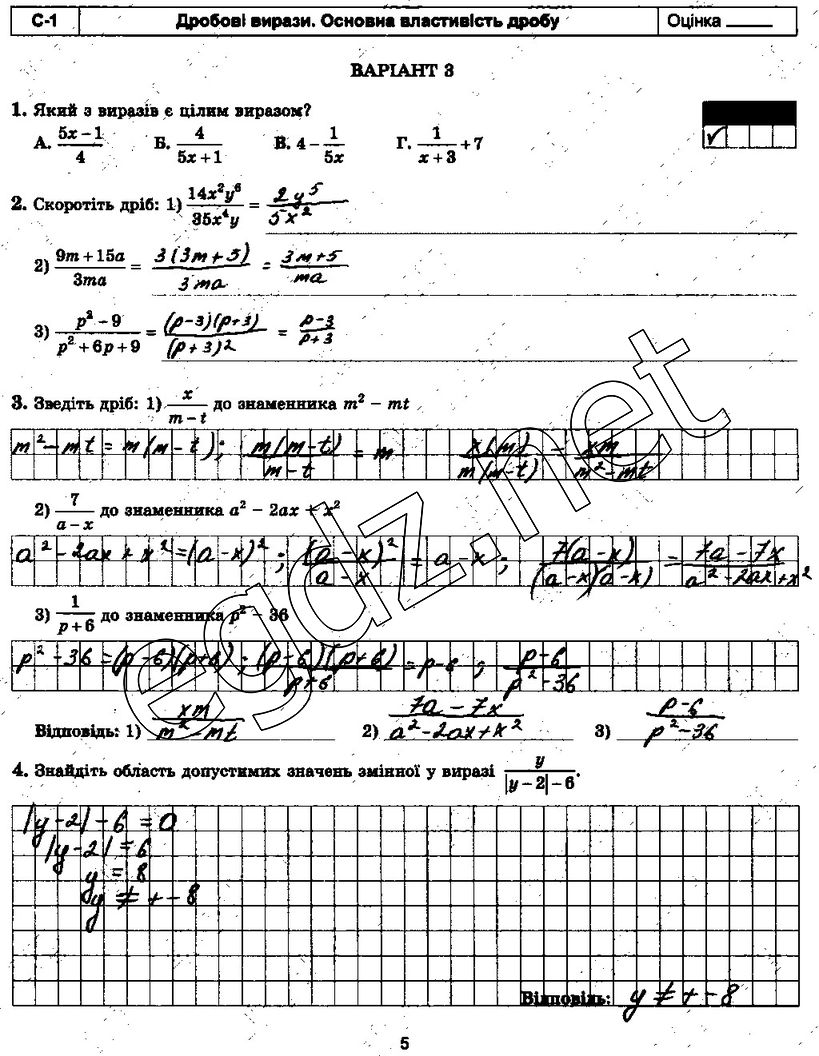 С-1 Дробові вирази. Основна властивість дробу Оцінка ______
ВАРІАНТ 3
1. Який з виразів є цілим виразом?
А. (5x − 1)/4 Б. 4/(5x + 1) В. 4 − 1/(5x) Г. 1/(x + 3) + 7
✓
2. Скоротіть дріб: 1) 14x²y⁶/35x⁴y = 2y⁵/5x²
2) (9m + 15a)/3ma = 3(3m + 5)/3ma = (3m + 5)/ma
3) (p² − 9)/(p² + 6p + 9) = (p−3)(p+3)/(p+3)² = (p−3)/(p+3)
3. Зведіть дріб: 1) x/(m − t) до знаменника m² − mt
m² − mt = m(m − t); m(m−t)/(m−t) = m x(m)/m(m−t) = xm/(m² − mt)
2) 7/(a − x) до знаменника a² − 2ax + x²
a² − 2ax + x² = (a−x)²; (a−x)²/(a−x) = a−x; 7(a−x)/(a−x)(a−x) = (7a − 7x)/(a² − 2ax + x²)
3) 1/(p + 6) до знаменника p² − 36
p² − 36 = (p−6)(p+6); (p−6)(p+6)/(p+6) = p−6; (p−6)/(p² − 36)
Відповідь: 1) xm/(m² − mt) 2) (7a − 7x)/(a² − 2ax + x²) 3) (p−6)/(p² − 36)
4. Знайдіть область допустимих значень змінної у виразі y/(|y − 2| − 6).
|y − 2| − 6 = 0
|y − 2| = 6
y = 8
y ≠ + − 8
Відповідь: y ≠ + − 8
5
egdz.net